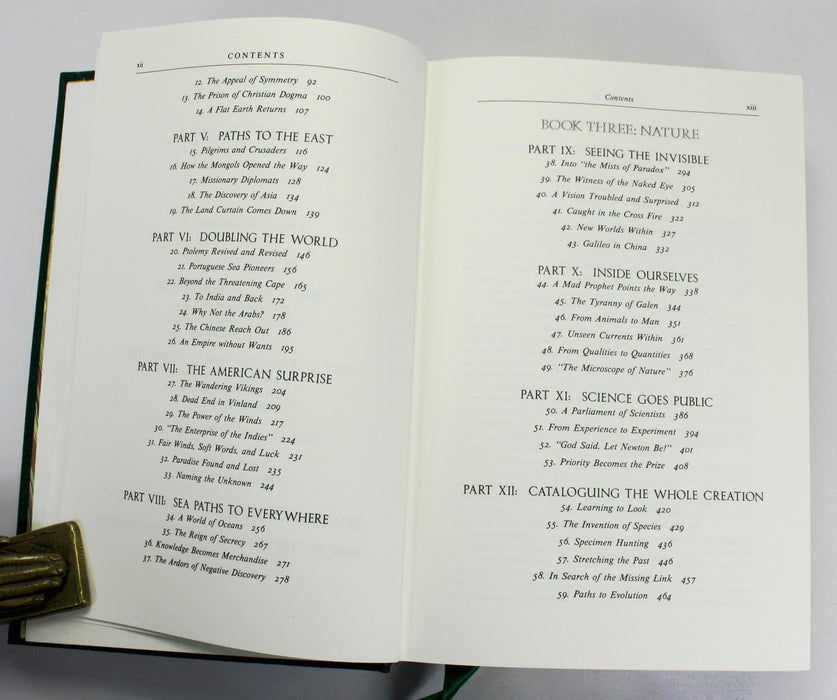 xii
CONTENTS
12. The Appeal of Symmetry 92
13. The Prison of Christian Dogma 100
14. A Flat Earth Returns 107
PART V: PATHS TO THE EAST
15. Pilgrims and Crusaders 116
16. How the Mongols Opened the Way 124
17. Missionary Diplomats 128
18. The Discovery of Asia 134
19. The Land Curtain Comes Down 139
PART VI: DOUBLING THE WORLD
20. Ptolemy Revived and Revised 146
21. Portuguese Sea Pioneers 156
22. Beyond the Threatening Cape 165
23. To India and Back 172
24. Why Not the Arabs? 178
25. The Chinese Reach Out 186
26. An Empire without Wants 195
PART VII: THE AMERICAN SURPRISE
27. The Wandering Vikings 204
28. Dead End in Vinland 209
29. The Power of the Winds 217
30. "The Enterprise of the Indies" 224
31. Fair Winds, Soft Words, and Luck 231
32. Paradise Found and Lost 235
33. Naming the Unknown 244
PART VIII: SEA PATHS TO EVERYWHERE
34. A World of Oceans 256
35. The Reign of Secrecy 267
36. Knowledge Becomes Merchandise 271
37. The Ardors of Negative Discovery 278
Contents
xiii
BOOK THREE: NATURE
PART IX: SEEING THE INVISIBLE
38. Into "the Mists of Paradox" 294
39. The Witness of the Naked Eye 305
40. A Vision Troubled and Surprised 312
41. Caught in the Cross Fire 322
42. New Worlds Within 327
43. Galileo in China 332
PART X: INSIDE OURSELVES
44. A Mad Prophet Points the Way 338
45. The Tyranny of Galen 344
46. From Animals to Man 351
47. Unseen Currents Within 361
48. From Qualities to Quantities 368
49. "The Microscope of Nature" 376
PART XI: SCIENCE GOES PUBLIC
50. A Parliament of Scientists 386
51. From Experience to Experiment 394
52. "God Said, Let Newton Be!" 401
53. Priority Becomes the Prize 408
PART XII: CATALOGUING THE WHOLE CREATION
54. Learning to Look 420
55. The Invention of Species 429
56. Specimen Hunting 436
57. Stretching the Past 446
58. In Search of the Missing Link 457
59. Paths to Evolution 464